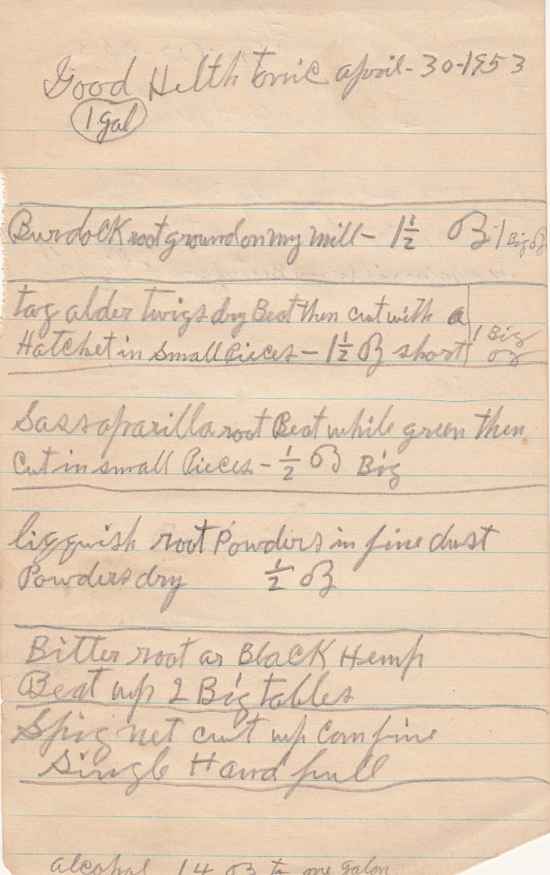 Good Helth tonic april-30-1953
1 gal
Burdock root ground on my mill - 1 1/2 oz 1 Big oz
tag alder twigs dry Beat then cut with a
Hatchet in small Pieces - 1 1/2 oz short 1 Big oz
Sassaparilla root Beat while green then
Cut in small Pieces - 1/2 oz Big
root Powders in fine dust
Powders dry 1/2 oz
Bitter root or Black Hemp
Beat up 2 Big tables
Spignet cut up Com fine
Single Hand full
alcohal 14 oz to one galon